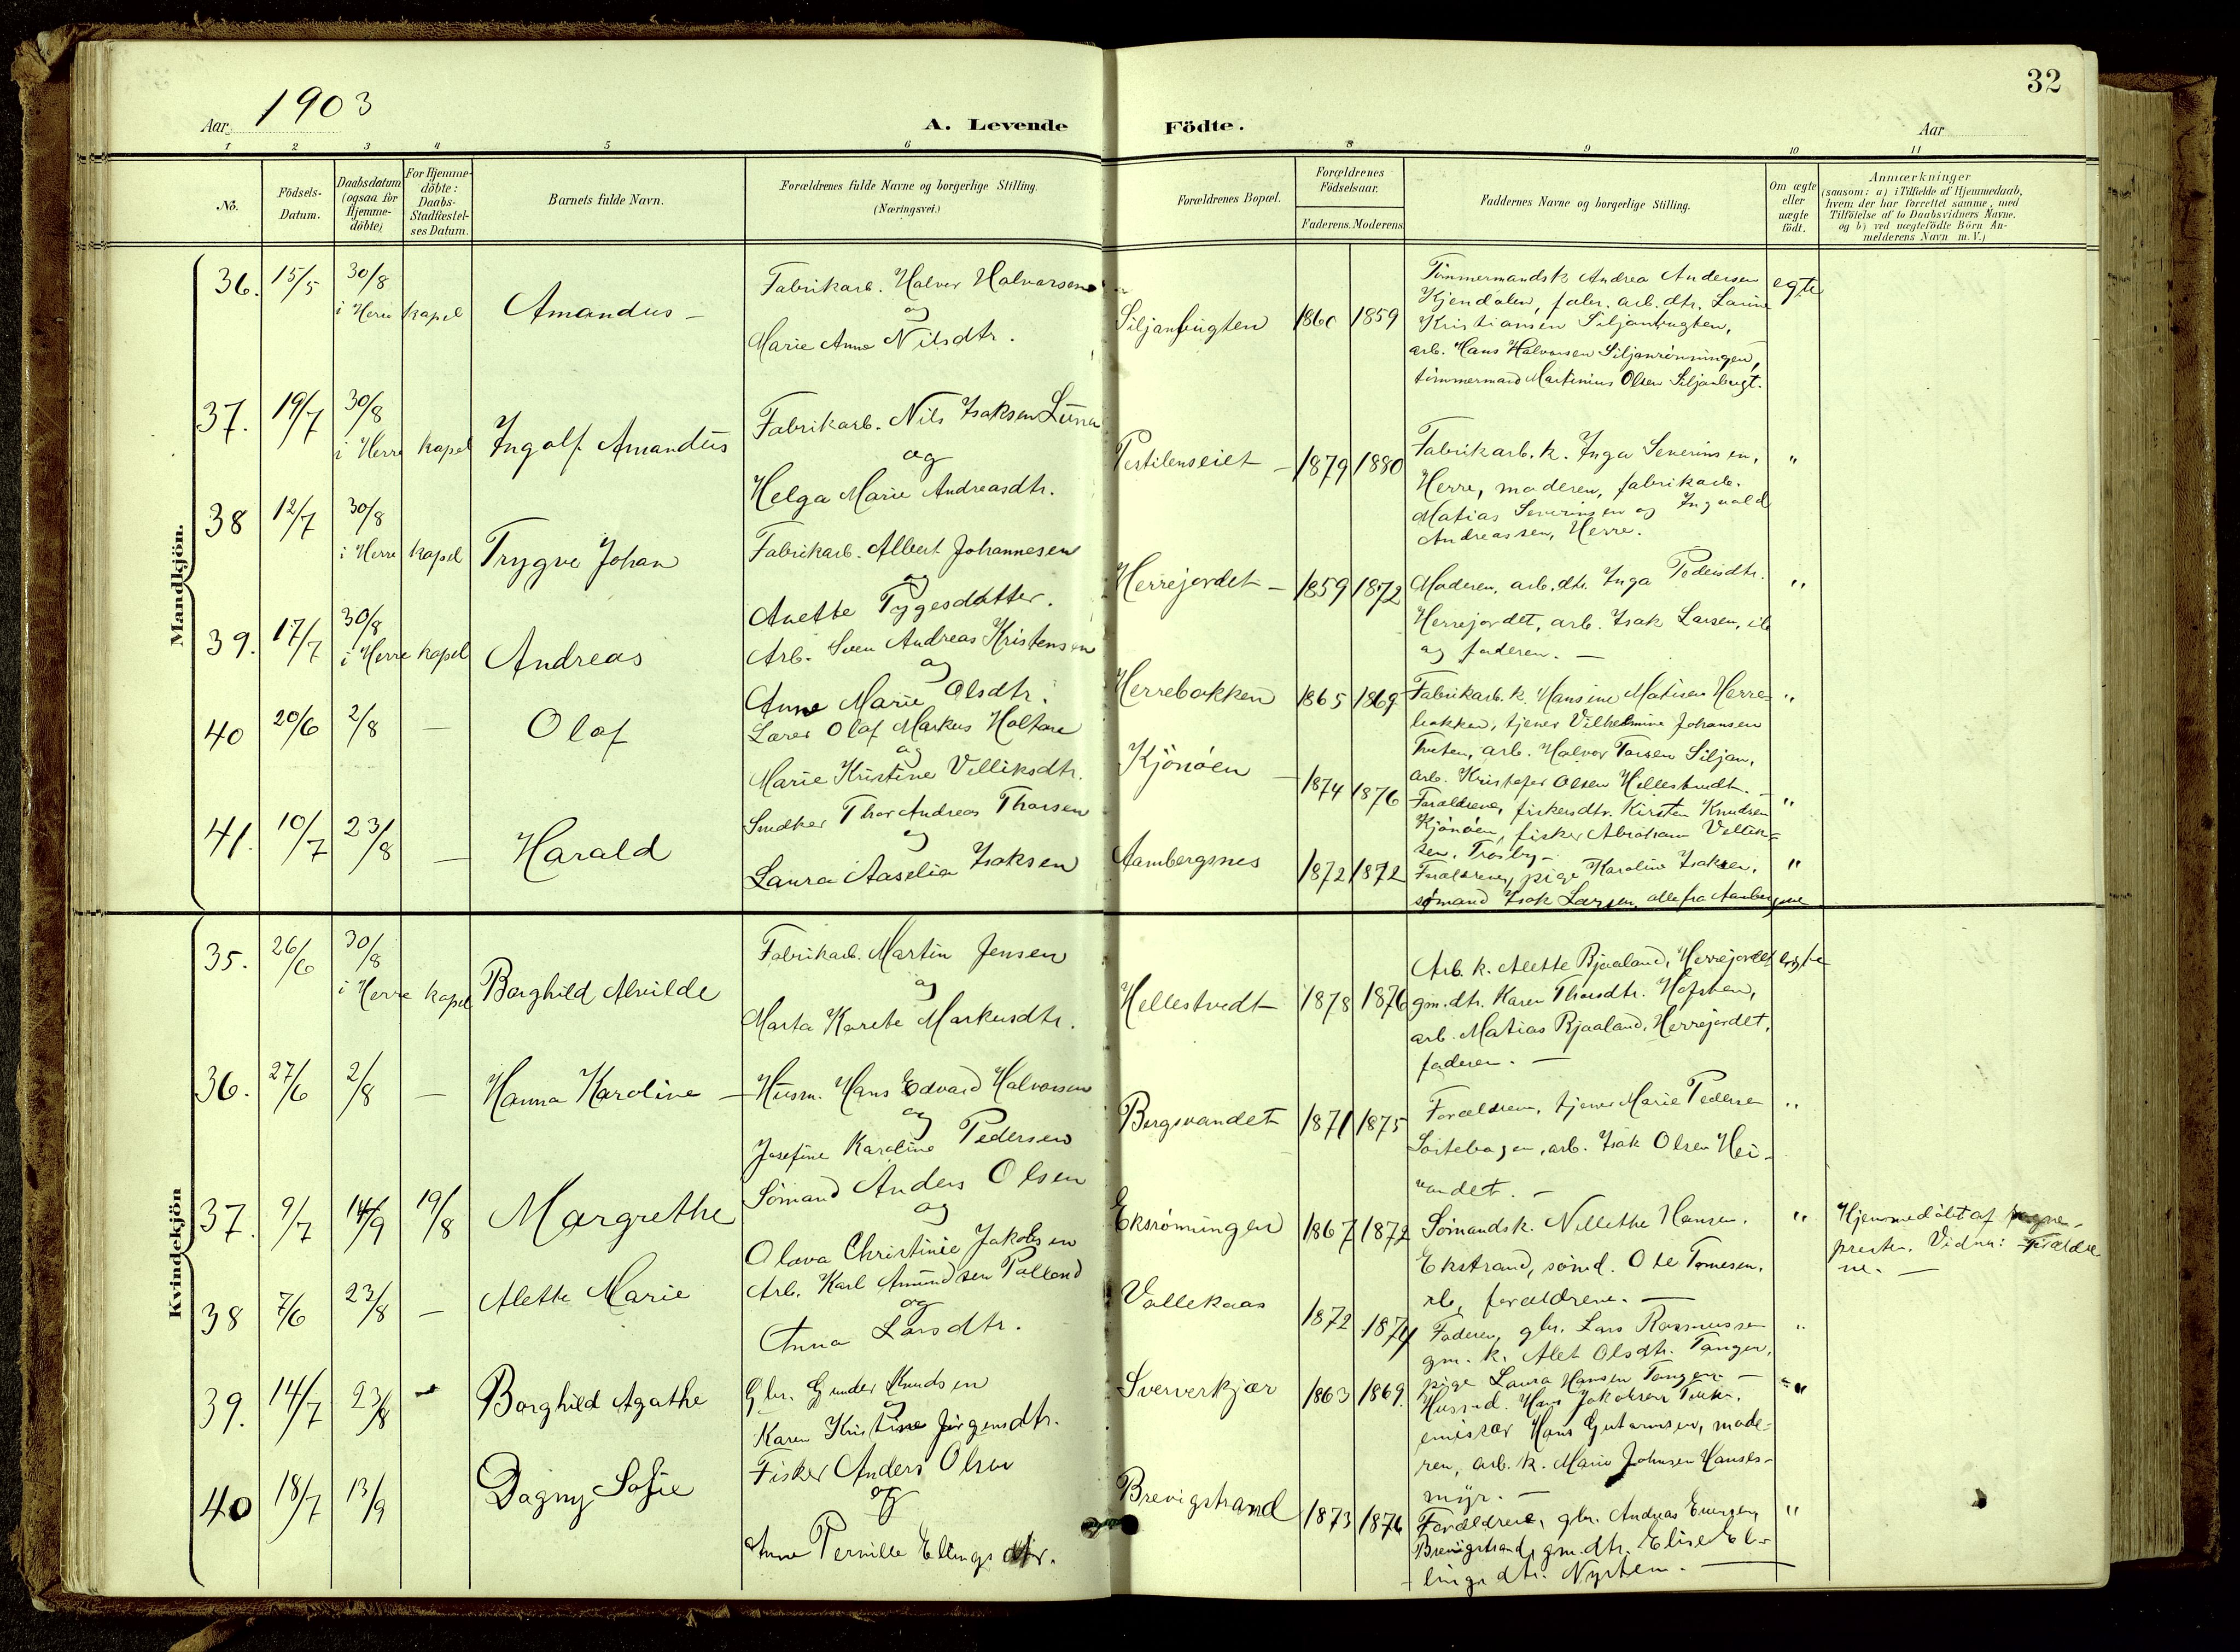 32
Aar 1903
A. Levende Födte.
Aar
1 2 3 4 5 6 8 9 10 11
No.
Födsels-
Datum.
Daabsdatum
(ogsaa for
Hjemme-
döbte)
For Hjemme-
döbte:
Daabs-
Stadfæstel-
ses Datum.
Barnets fulde Navn.
Forældrenes fulde Navne og borgerlige Stilling.
(Næringsvei.)
Forældrenes Bopæl.
Forældrenes
Födselsaar.
Faderens. Moderens
Faddernes Navne og borgerlige Stilling.
Om ægte
eller
uægte
födt.
Anmærkninger
(saasom: a) i Tilfælde af Hjemmedaab,
hvem der har forrettet samme, med
Tilföielse af to Daabsvidners Navne.
og b) ved uægtefödte Börn An-
melderens Navn m. V.)
Mandkjön.
36. 15/5 30/8
i Herre kapel
Amandus -
Fabrikarb. Halvor Halvorsen
og
Marie Anne Nilsdtr.
Siljanbugten 1860 1859
Tömmermandsk Andrea Andersen
Kjendalen, fabr. arb. dtr. Laurine
Kristiansen Siljanbugten,
arb. Hans Halvorsen Siljanrönningen,
tömmermand Martinius Olsen Siljanbugt.
egte
37. 19/7 30/8
i Herre kapel
Ingolf Amandus
Fabrikarb. Nils Isaksen Luna
og
Helga Marie Andreasdtr.
Pestilenseiet - 1879 1880
Fabrikarb. k. Inga Severinsen,
Herre, moderen, fabrikarb.
Matias Severinsen og Ingvald
Andreassen, Herre.
"
38 12/7 30/8
i Herre kapel
Trygve Johan
Fabrikarb. Albert Johannesen
og
Anette Tygesdatter.
Herrejordet - 1859 1872
Moderen, arb. dtr. Inga Pedersdtr.
Herrejordet, arb. Isak Larsen, ib
og faderen. -
"
39. 17/7 30/8
i Herre kapel
Andreas
Arb. Sven Andreas Kristensen
og
Anne Marie Olsdtr.
Herrebakken 1865 1869
Fabrikarb. k. Hansine Matisen Herre-
bakken, tjener Vilhelmine Johansen
Tveten, arb. Halvor Tarsen Siljan,
arb. Kristofer Olsen Hellestvedt. -
"
40 20/6 2/8 -
Olaf
Lærer Olaf Markus Holtane
og
Marie Kristine Velliksdtr.
Kjönöen - 1874 1876
Forældrene, fiskersdtr. Kirsten Knudsen
Kjönöen, fisker Abraham Vellik-
sen, Trosby -
"
41. 10/7 23/8 -
Harald
Snedker Thor Andreas Thorsen
og
Laura Aaselia Isaksen
Aambergsnes 1872 1872
Forældrene, pige Karoline Isaksen,
sömand Isak Larsen, alle fra Aambergsnes
"
Kvindekjön
35. 26/6 30/8
i Herre kapel
Borghild Alvilde
Fabrikarb. Martin Jensen
og
Marta Karete Markusdtr.
Hellestvedt 1878 1876
Arb. k. Alette Bjaaland, Herrejordet
gm. dtr. Karen Thorsdtr. Hofsten,
arb. Matias Bjaaland, Herrejordet,
faderen. -
egte
36. 27/6 2/8 -
Hanna Karoline -
Husm. Hans Edvard Halvorsen
og
Josefine Karoline Pedersen
Bergsvandet 1871 1875
Forældrene, tjener Marie Pedersen
arb. Isak Olsen Hei-
vandet. -
"
37. 9/7 14/9 19/8
Margrethe
Sömand Anders Olsen
og
Olava Christine Jakobsen
Eksrönningen 1867 1872
Sömandsk. Nillethe Hansen,
Ekstrand, sömd. Ole Tomesen,
ib, forældrene. -
"
Hjemmedöbt af sogne-
presten. Vidner: Forældre
ne. -
38 7/6 23/8 -
Alette Marie
Arb. Karl Amundsen Tollend
og
Anna Larsdtr.
Vallekaas 1872 1874
Faderen, gbr. Lars Rasmussen
gm. k. Alet Olsdtr. Tangen,
pige Laura Hansen Tangen -
"
39. 14/7 23/8 -
Borghild Agathe
Gbr. Gunder Knudsen
og
Karen Kristine Jörgensdtr.
Sververkjær 1863 1869.
Husmd. Hans Jakobsen
emisær Hans Gutormsen, mode-
ren, arb. k. Marie Johnsen Hanses-
myr. -
"
40 18/7 13/9
Dagny Sofie
Fisker Anders Olsen
og
Anne Pernille Ellingsdtr.
Brevigstrand 1873 1876
Forældrene, gbr. Andreas
Brevigstrand, gm. dtr. Elise El-
lingsdtr. Nysten. -
"